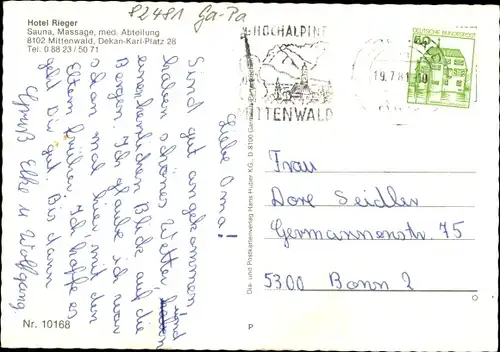 82481 Ga-Pa
Hotel Rieger
Sauna, Massage, med. Abteilung
8102 Mittenwald, Dekan-Karl-Platz 28
Tel. 0 88 23 / 50 71
HOCHALPINE
MITTENWALD
19.7.81
60
DEUTSCHE BUNDESPOST
Liebe Oma!
Sind gut angekommen
haben schönes Wetter und
einen herrlichen Blick auf die
Bergen. Ich glaube ich war
schon mal hier mit den
Eltern früher. Ich hoffe es
geht Dir gut. Bis dann
Gruß Elke u Wolfgang.
Frau
Dore Seidler
Germanenstr. 75
5300 Bonn 2
Dia- und Postkartenverlag Hans Huber KG, D 8100 Garmisch-Partenkirchen
Nr. 10168
P
O